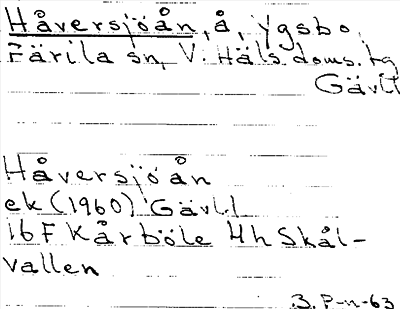 Håversjöån, å, Ygsbo,
Färila sn, V. Häls. doms. tg
Gävll
Håversjöån
ek (1960) Gävll
16F Kårböle 4h Skål-
vallen
B. P-n-63